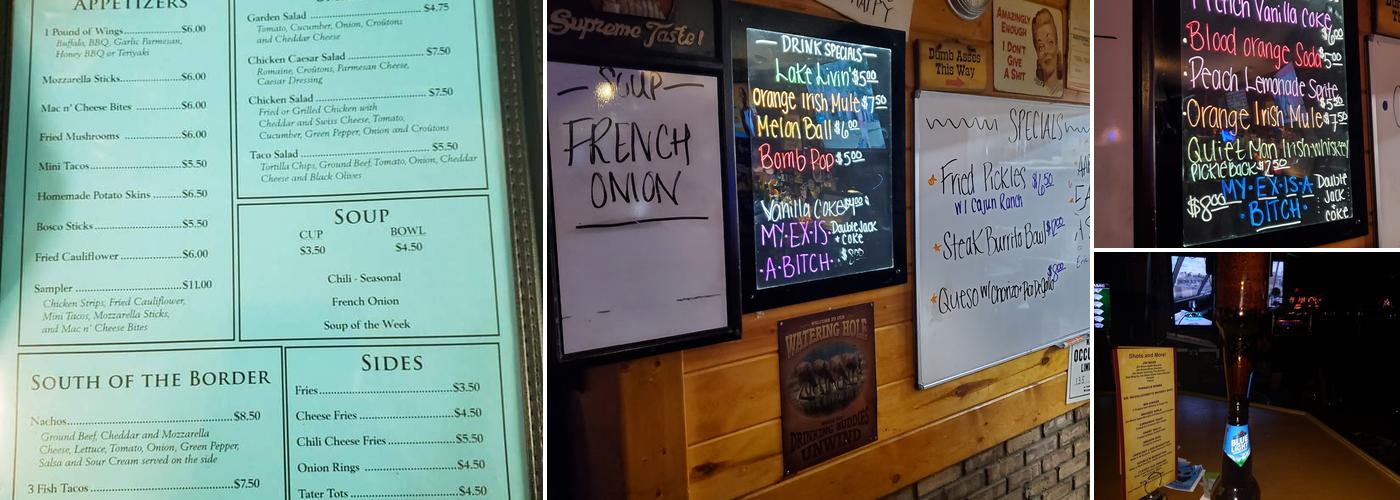 APPETIZERS
1 Pound of Wings $6.00
Buffalo, BBQ, Garlic Parmesan,
Honey BBQ or Teriyaki
Mozzarella Sticks $6.00
Mac n' Cheese Bites $6.00
Fried Mushrooms $6.00
Mini Tacos $5.50
Homemade Potato Skins $6.50
Bosco Sticks $5.50
Fried Cauliflower $6.00
Sampler $11.00
Chicken Strips, Fried Cauliflower,
Mini Tacos, Mozzarella Sticks,
and Mac n' Cheese Bites
SOUTH OF THE BORDER
Nachos $8.50
Ground Beef, Cheddar and Mozzarella
Cheese, Lettuce, Tomato, Onion, Green Pepper,
Salsa and Sour Cream served on the side
3 Fish Tacos $7.50
Garden Salad $4.75
Tomato, Cucumber, Onion, Croûtons
and Cheddar Cheese
Chicken Caesar Salad $7.50
Romaine, Croûtons, Parmesan Cheese,
Caesar Dressing
Chicken Salad $7.50
Fried or Grilled Chicken with
Cheddar and Swiss Cheese, Tomato,
Cucumber, Green Pepper, Onion and Croûtons
Taco Salad $5.50
Tortilla Chips, Ground Beef, Tomato, Onion, Cheddar
Cheese and Black Olives
SOUP
CUP BOWL
$3.50 $4.50
Chili - Seasonal
French Onion
Soup of the Week
SIDES
Fries $3.50
Cheese Fries $4.50
Chili Cheese Fries $5.50
Onion Rings $4.50
Tater Tots $4.50
Supreme Taste!
SOUP
FRENCH
ONION
HAPPY
DRINK SPECIALS
Lake Livin' $5.00
Orange Irish Mule $7.50
Melon Ball $6.00
Bomb Pop $5.00
Vanilla Coke
MY·EX·IS· Double Jack
+ Coke
·A·BITCH· $8.00
WELCOME TO OUR
WATERING HOLE
DRINKING BUDDIES
UNWIND
Dumb Asses
This Way
AMAZINGLY
ENOUGH
I DON'T
GIVE
A SHIT
SPECIALS
Fried Pickles $6.50
w/ Cajun Ranch
Steak Burrito Bowl
Queso w/ Chorizo + Pico De Gallo $8.00
French Vanilla Coke
$6.00
Blood orange Soda $5.00
Peach Lemonade Sprite
$5.50
Orange Irish Mule $7.50
Quiet Man Irish whiskey
PickleBack $2.50
MY·EX·IS·A Double
$8.00 BITCH Jack
+ Coke
Shots and More!
BLUE
LIGHT